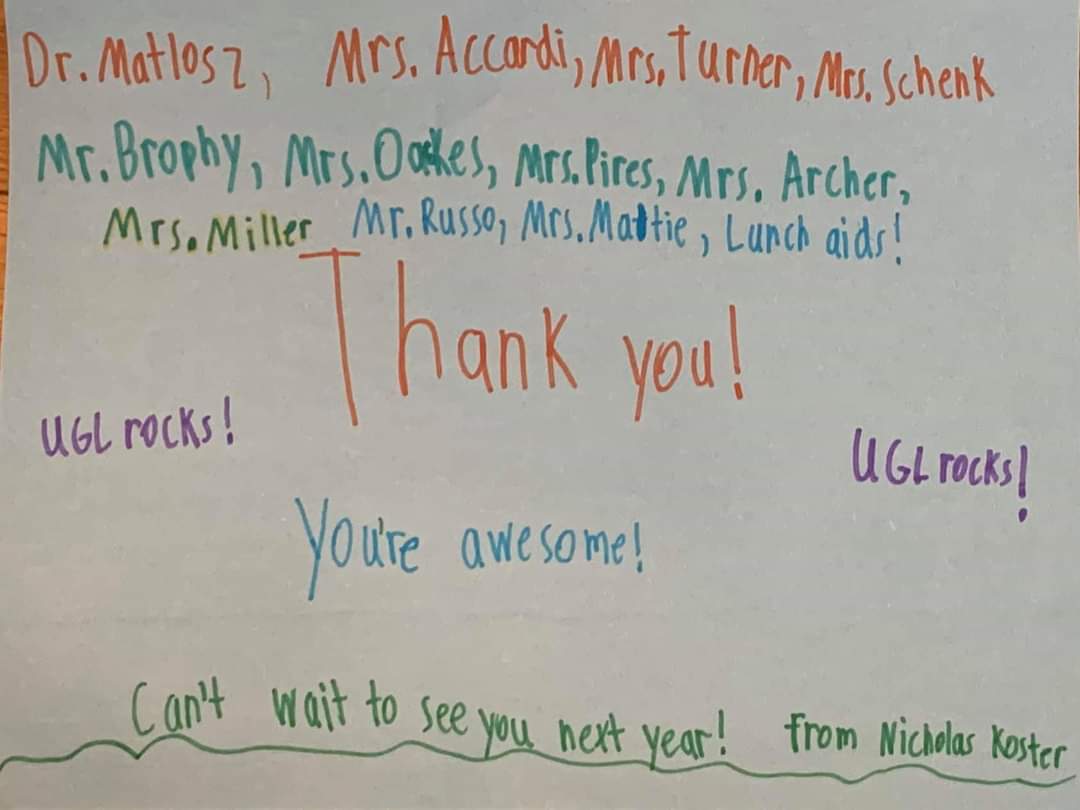 Dr. Matlosz, Mrs. Accardi, Mrs. Turner, Mrs. Schenk
Mr. Brophy, Mrs. Oakes, Mrs. Pires, Mrs. Archer,
Mrs. Miller Mr. Russo, Mrs. Mattie, Lunch aids!
Thank you!
UGL rocks!
UGL rocks!
You're awesome!
Can't wait to see you next year! from Nicholas Koster